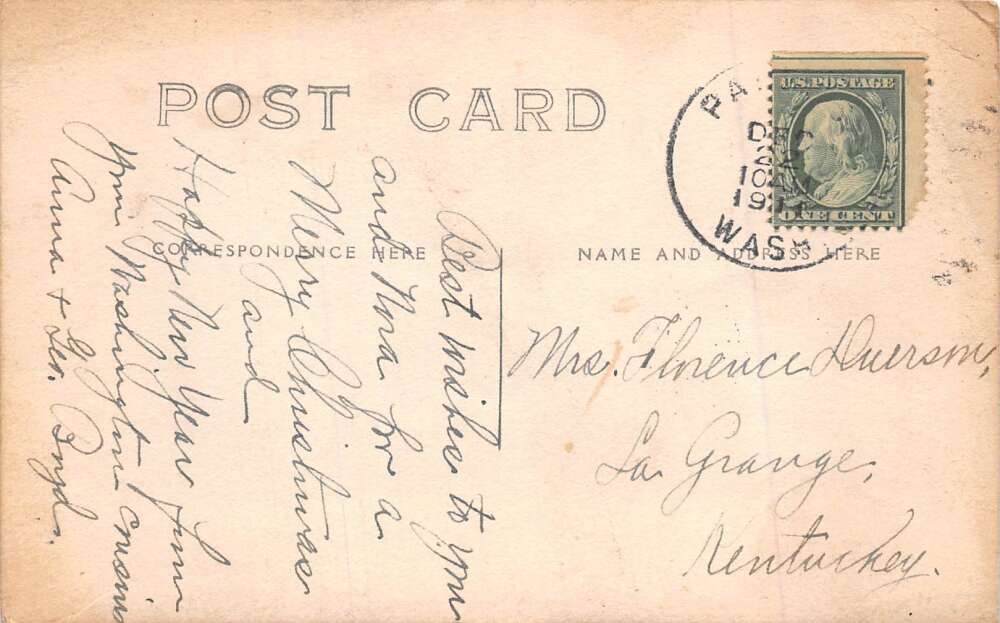 POST CARD
CORRESPONDENCE HERE
NAME AND ADDRESS HERE
U.S. POSTAGE
ONE CENT
PA
DEC
10 AM
1911
WASH
Best wishes to you
and Nora for a
Merry Christmas
and
Happy New Year from
your Washington cousins
Anna & Geo. Boyd.
Mrs. Florence Duerson,
La Grange,
Kentuckey.